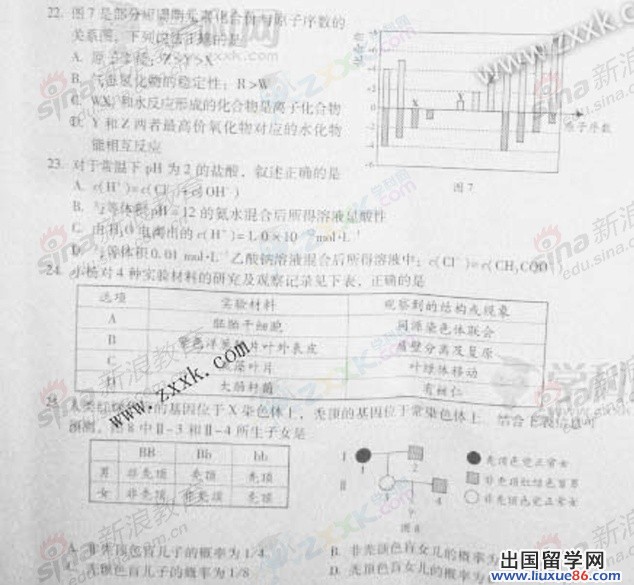 22. 图7是部分短周期元素化合价与原子序数的
关系图，下列说法正确的是
A. 原子半径：Z>Y>X
B. 气态氢化物的稳定性：R>W
C. WX 和水反应形成的化合物是离子化合物
D. Y和Z两者最高价氧化物对应的水化物
能相互反应
化合价
+2
0
-2
-4
-6
X
原子序数
图7
23. 对于常温下pH为2的盐酸，叙述正确的是
A. c(H⁺)=c(Cl⁻)+c(OH⁻)
B. 与等体积pH=12的氨水混合后所得溶液显酸性
C. 由H₂O电离出的c(H⁺)=1.0×10 mol·L⁻¹
D. 与等体积0.01 mol·L⁻¹乙酸钠溶液混合后所得溶液中：c(Cl⁻)=c(CH₃COO⁻)
24. 小杨对4种实验材料的研究及观察记录见下表，正确的是
选项 实验材料 观察到的结构或现象
A 胚胎干细胞 同源染色体联会
B 紫色洋葱鳞片叶外表皮 质壁分离及复原
C 叶片 叶绿体移动
D 大肠杆菌 有核仁
25. 人类红绿色盲的基因位于X染色体上，秃顶的基因位于常染色体上，结合上表信息可
预测，图8中Ⅱ-3和Ⅱ-4所生子女是
BB Bb bb
男 非秃顶 秃顶 秃顶
女 非秃顶 非秃顶 秃顶
Ⅰ
1
2
Ⅱ
3
4
?
图8
秃顶色觉正常女
非秃顶红绿色盲男
非秃顶色觉正常女
A. 非秃顶色盲儿子的概率为1/4
B. 非秃顶色盲女儿的概率为
秃顶色盲儿子的概率为1/8
D. 秃顶色盲女儿的概率为
www.zxxk.com
www.zxxk.com
ZXXK.COM
学科网
sina 新浪教育
edu.sina.com.cn
出国留学网
www.liuxue86.com